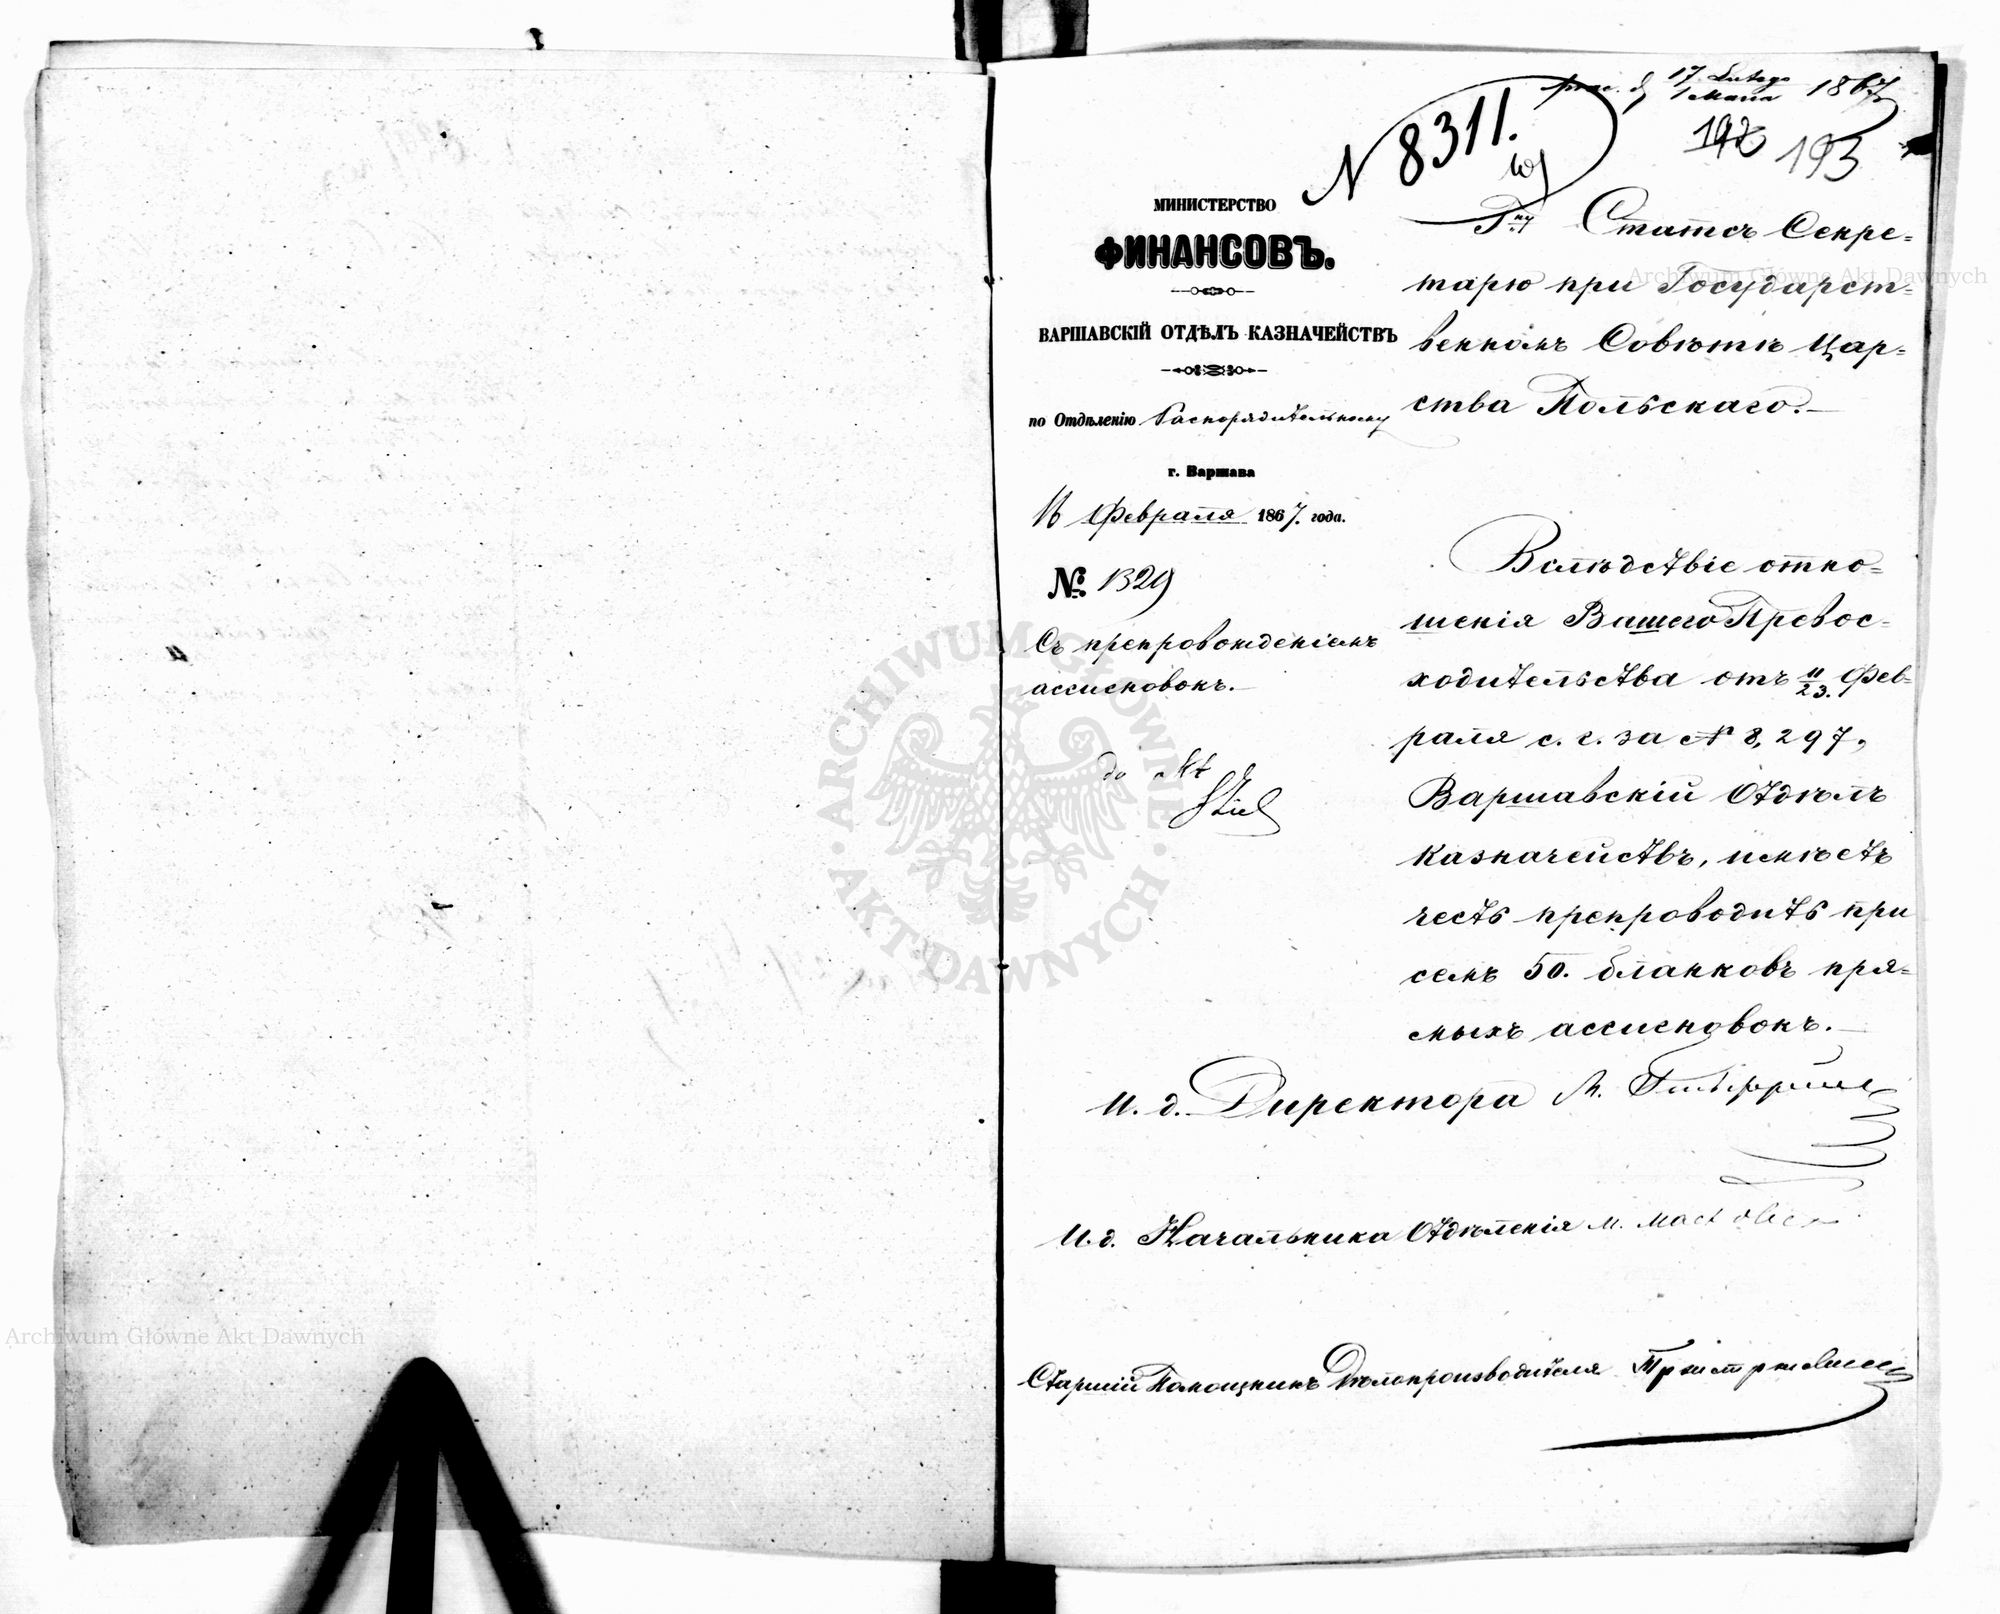 prez. d. 17 Lutego / 1 Marca 1867
N 8311.
192 193
МИНИСТЕРСТВО
ФИНАНСОВЪ.
ВАРШАВСКІЙ ОТДѢЛЪ КАЗНАЧЕЙСТВЪ
по Отдѣленію Распорядительному
г. Варшава
16 Февраля 1867. года.
№ 1329
Съ препровожденіемъ
ассигновокъ.
do Akt
Гну Статсъ Секре=
тарю при Государст=
венномъ Совѣтѣ Цар=
ства Польскаго.
Вслѣдствіе отно=
шенія Вашего Превос=
ходительства отъ 11/23. Фев=
раля с. г. за № 8,297,
Варшавскій Отдѣлъ
Казначействъ, имѣетъ
честь препроводить при
семъ 50. бланковъ пря=
мыхъ ассигновокъ.
И. д. Директора
И. д. Начальника Отдѣленія
Старшій Помощникъ Дѣлопроизводителя
ARCHIWUM GŁÓWNE AKT DAWNYCH
Archiwum Główne Akt Dawnych
Archiwum Główne Akt Dawnych